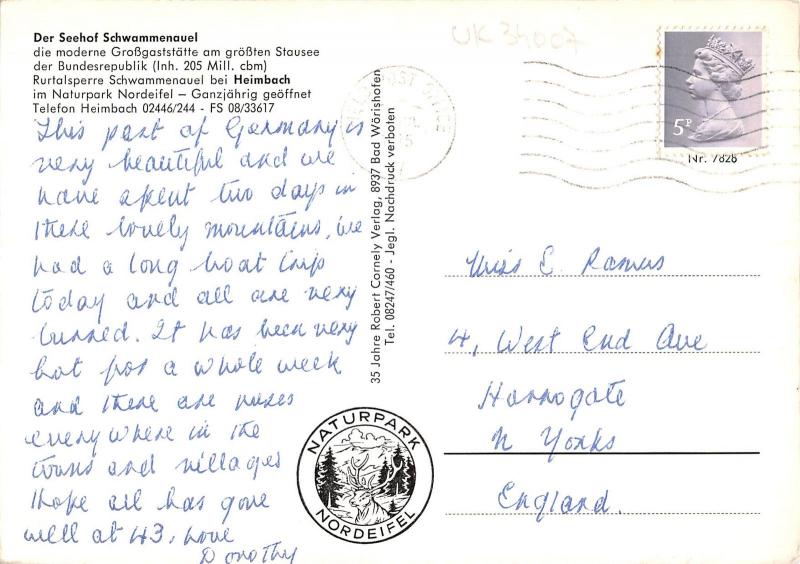 Der Seehof Schwammenauel
die moderne Großgaststätte am größten Stausee
der Bundesrepublik (Inh. 205 Mill. cbm)
Rurtalsperre Schwammenauel bei Heimbach
im Naturpark Nordeifel – Ganzjährig geöffnet
Telefon Heimbach 02446/244 - FS 08/33617
This part of Germany is
very beautiful and we
have spent two days in
these lovely mountains, we
had a long boat trip
today and all are very
burned. It has been very
hot for a whole week
and there are
everywhere in the
towns and villages
Hope all has gone
well at 43, love
Dorothy
35 Jahre Robert Cornely Verlag, 8937 Bad Wörishofen
Tel. 08247/460 - Jegl. Nachdruck verboten
NATURPARK
NORDEIFEL
UK 34007
POST OFFICE
5P
Nr. 7828
Miss E. Ramus
4, West End Ave
Harrogate
N Yorks
England.